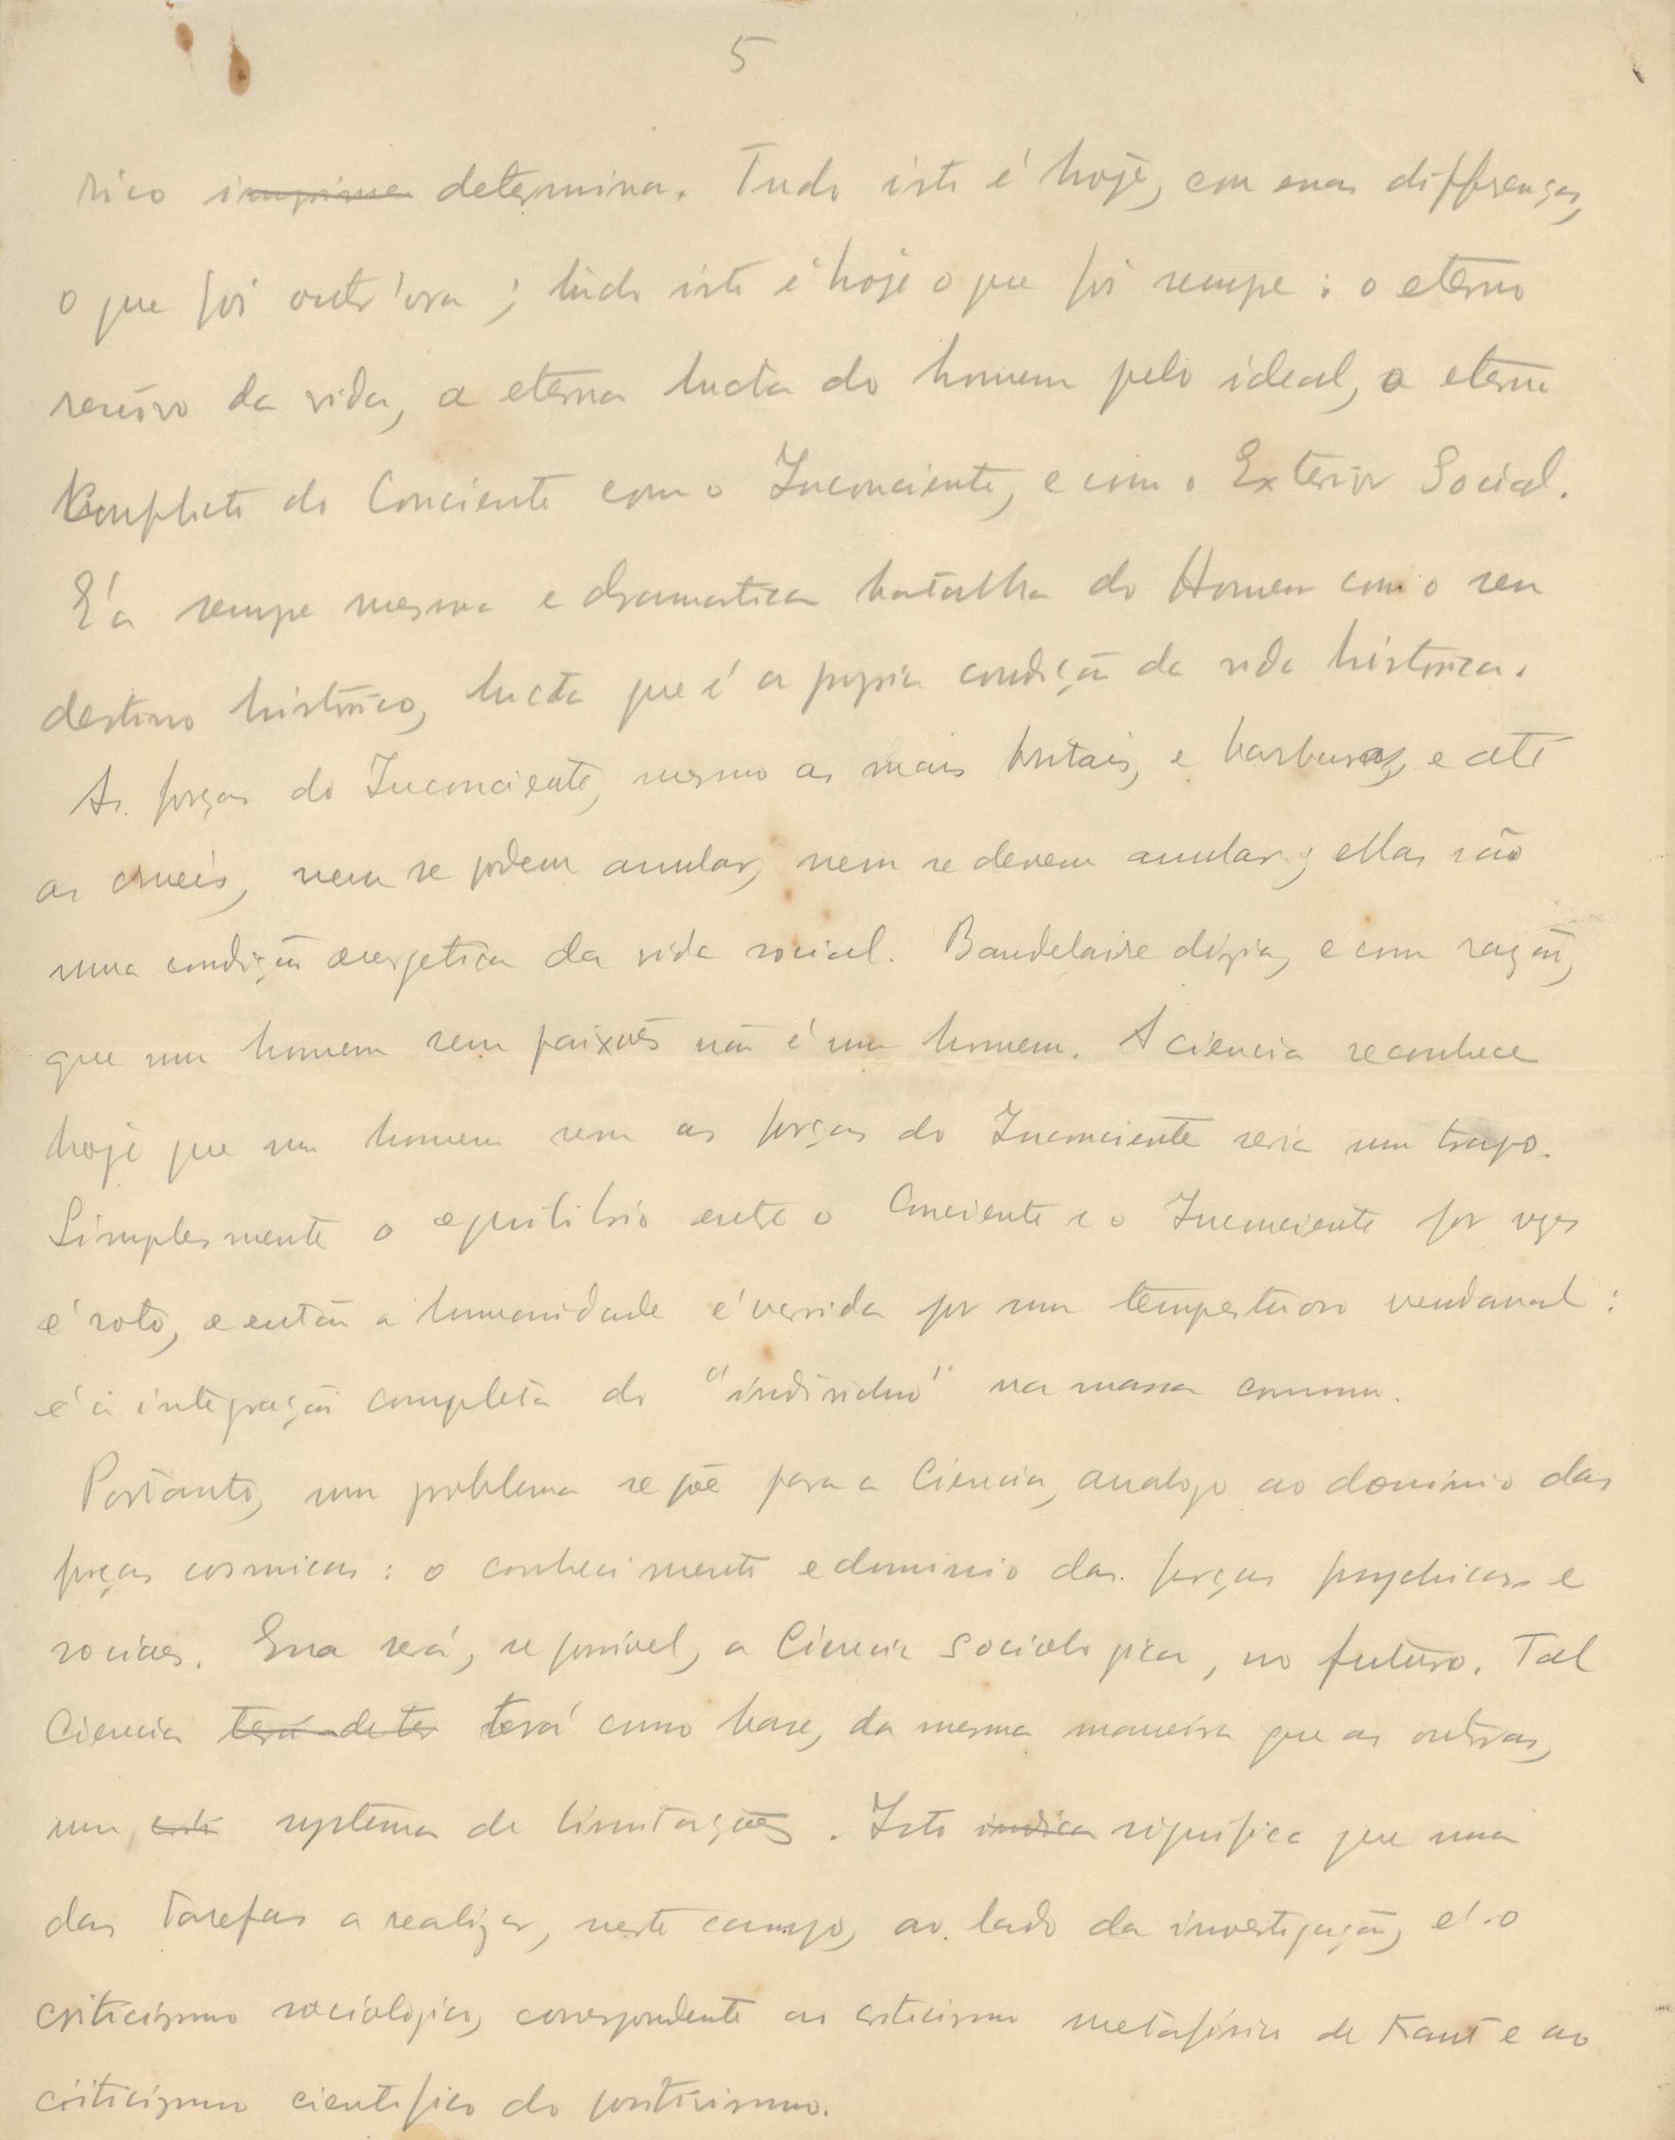 5
rico ~~imprime~~ determina. Tudo isto é hoje, com suas differenças,
o que foi outr'ora; tudo isto é hoje o que foi sempre: o eterno
da vida, a eterna lucta do homem pelo ideal, o eterno
Conflicto do Conciente com o Inconciente, e com o Exterior Social.
E' a sempre mesma e dramatica batalha do Homem com o seu
destino histórico, lucta que é a propria condição da vida histórica.
As forças do Inconciente, mesmo as mais brutais, e barbaras, e até
as crueis, nem se podem anular, nem se devem anular; ellas são
uma condição energetica da vida social. Baudelaire dizia, e com razão,
que um homem sem paixões não é um homem. A ciencia reconhece
hoje que um homem sem as forças do Inconciente seria um trapo.
Simplesmente o equilibrio entre o Conciente e o Inconciente por vezes
é roto, e então a humanidade é varrida por um tempestuoso vendaval:
é a integração completa do "individuo" na massa comum.
Portanto, um problema se põe para a Ciencia, analogo ao dominio das
forças cosmicas: o conhecimento e dominio das forças psychicas e
sociaes. Essa será, se possivel, a Ciencia sociologica, no futuro. Tal
Ciencia ~~terá de ter~~ terá como base, da mesma maneira que as outras,
um systema de limitações. Isto ~~indica~~ significa que uma
das tarefas a realizar, neste campo, ao lado da investigação, é o
criticismo sociologico, correspondente ao criticismo metafísico de Kant e ao
criticismo cientifico do positivismo.